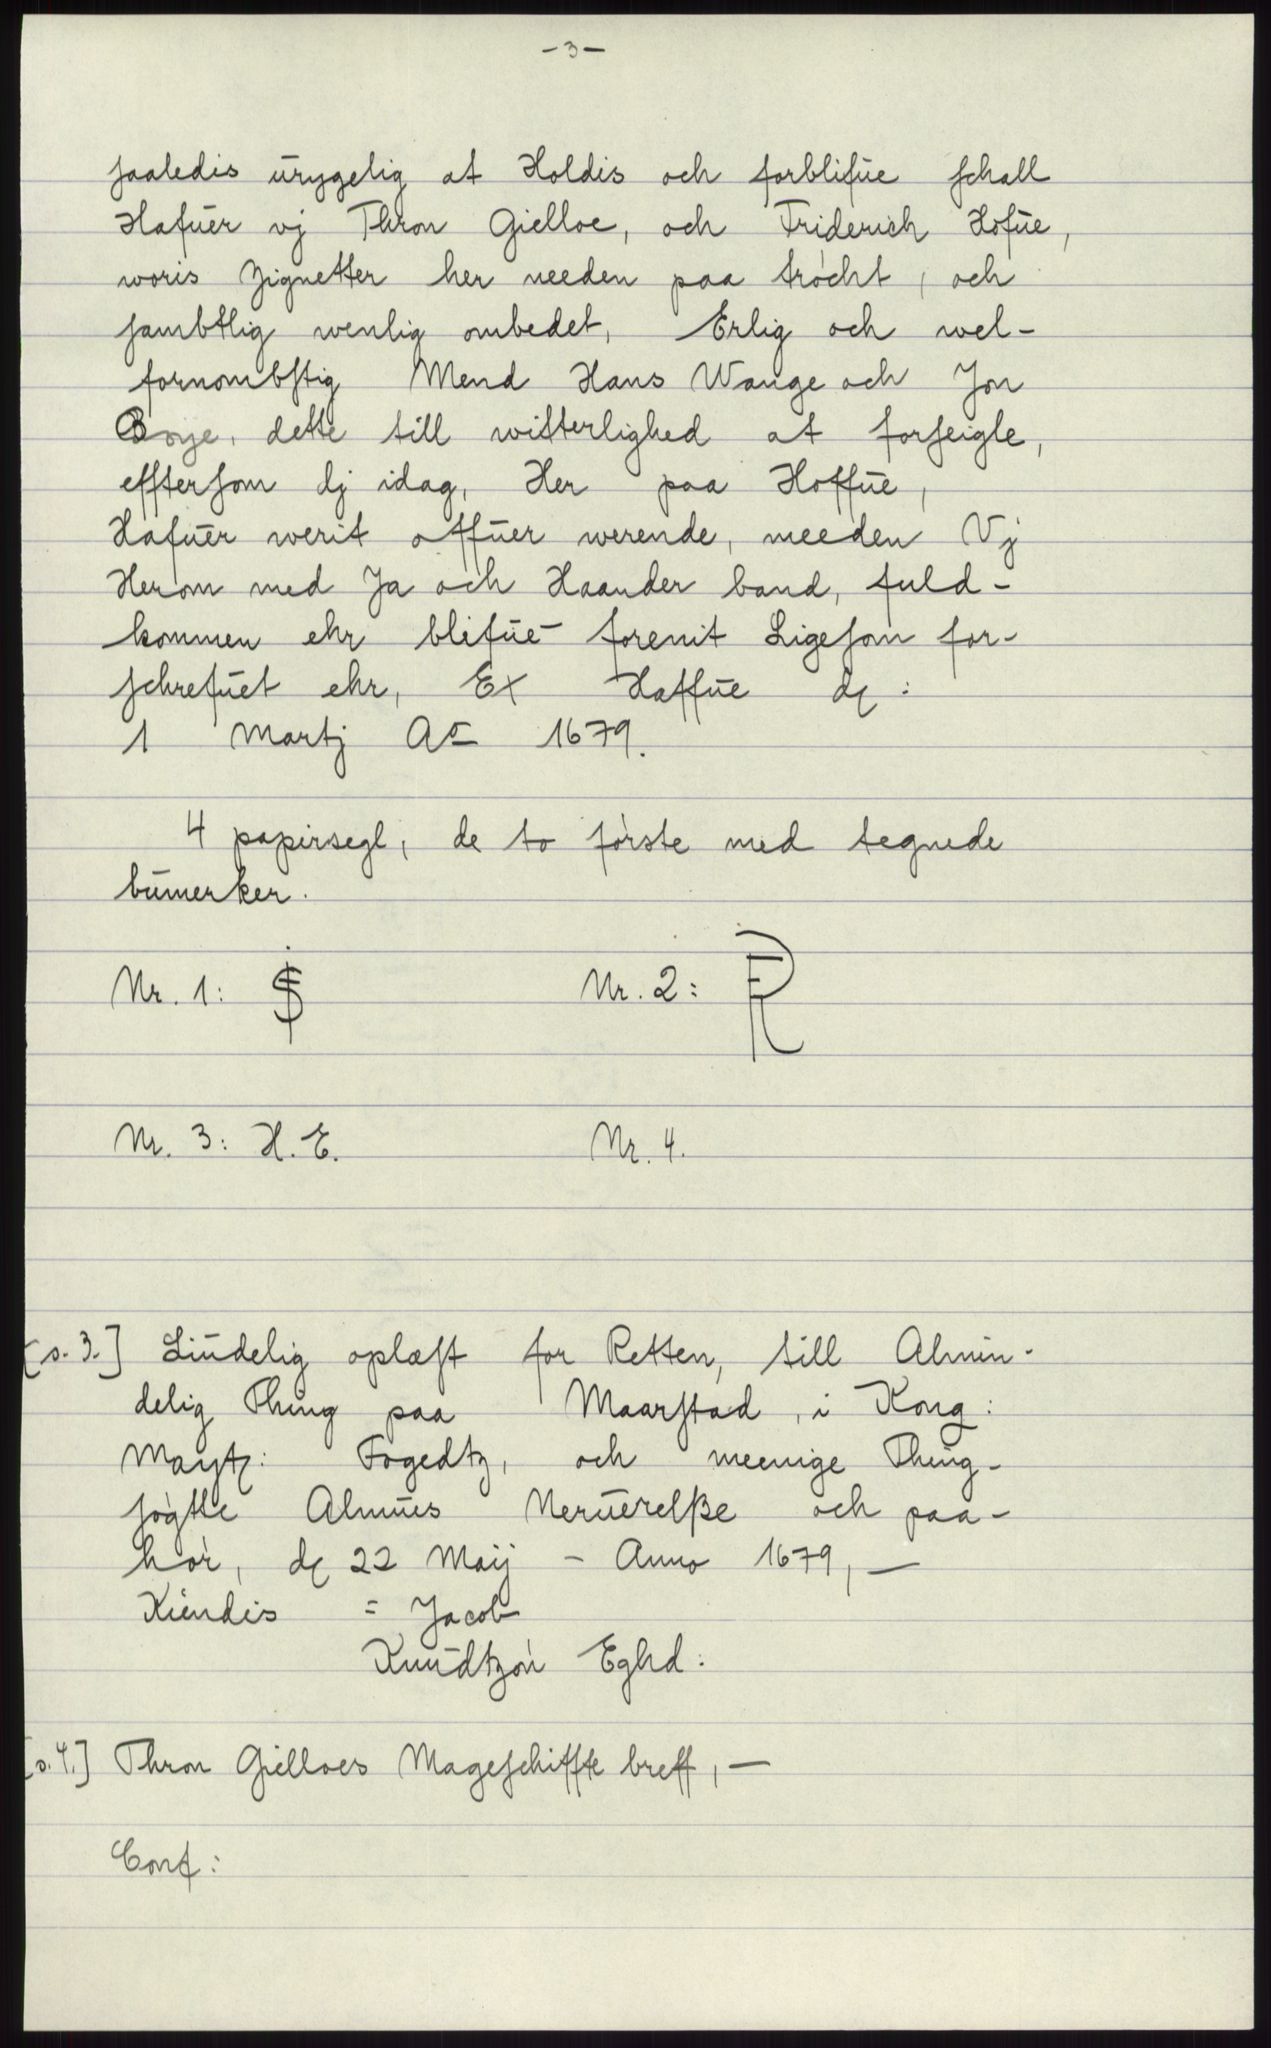 -3-
saaledis urygelig at Holdis och forblifue schall
Hafuer vj Thron Gielloe, och Friderich Hofue,
woris Zignetter her needen paa tröcht, och
sambtlig wenlig ombedet, Erlig och wel-
fornombstig Mend Hans Wange och Jon
Boye, dette till witterlighed at forseigle,
efftersom dj idag, Her paa Hoffue,
Hafuer werit offuer werende, meeden Vj
Herom med Ja och Haander band, fuld-
kommen ehr blifue forenit Ligesom for-
schrefuet ehr, Ex Haffue dę:
1 Martj Ao 1679.
4 papirsegl, de to første med tegnede
bumerker.
Nr. 1: Nr. 2:
Nr. 3: H. E. Nr. 4.
[s. 3.] Liudelig oplæst for Retten, till Almin-
delig Thing paa Maarstad, i Kong:
Maytz: Fogedtz, och meenige Thing-
søgtte Almues Neruerelße och paa-
hör, dę 22 Maij - Anno 1679, —
Kiendis = Jacob
Knudtzön Eghd:
[s. 4.] Thron Gielloes Mageschiffte breff, —
Conf: